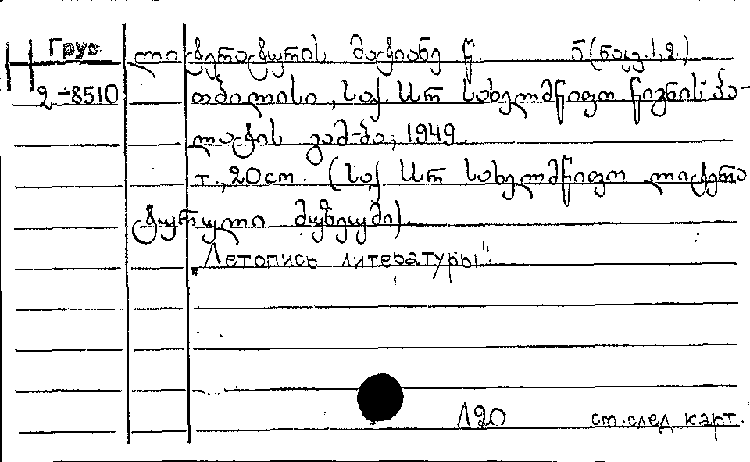 Груз. ლიტერატურის მატიანე წ. 5 (ნაკვ. 1, 2.)
2-8510 თბილისი, საქ. სსრ სახელმწიფო წიგნის პა-
ლატის გამ-ბა, 1949
т., 20 см. (საქ. სსრ სახელმწიფო ლიტერა
ტურული მუზეუმი)
"Летопись литературы"
120 ст. след карт.